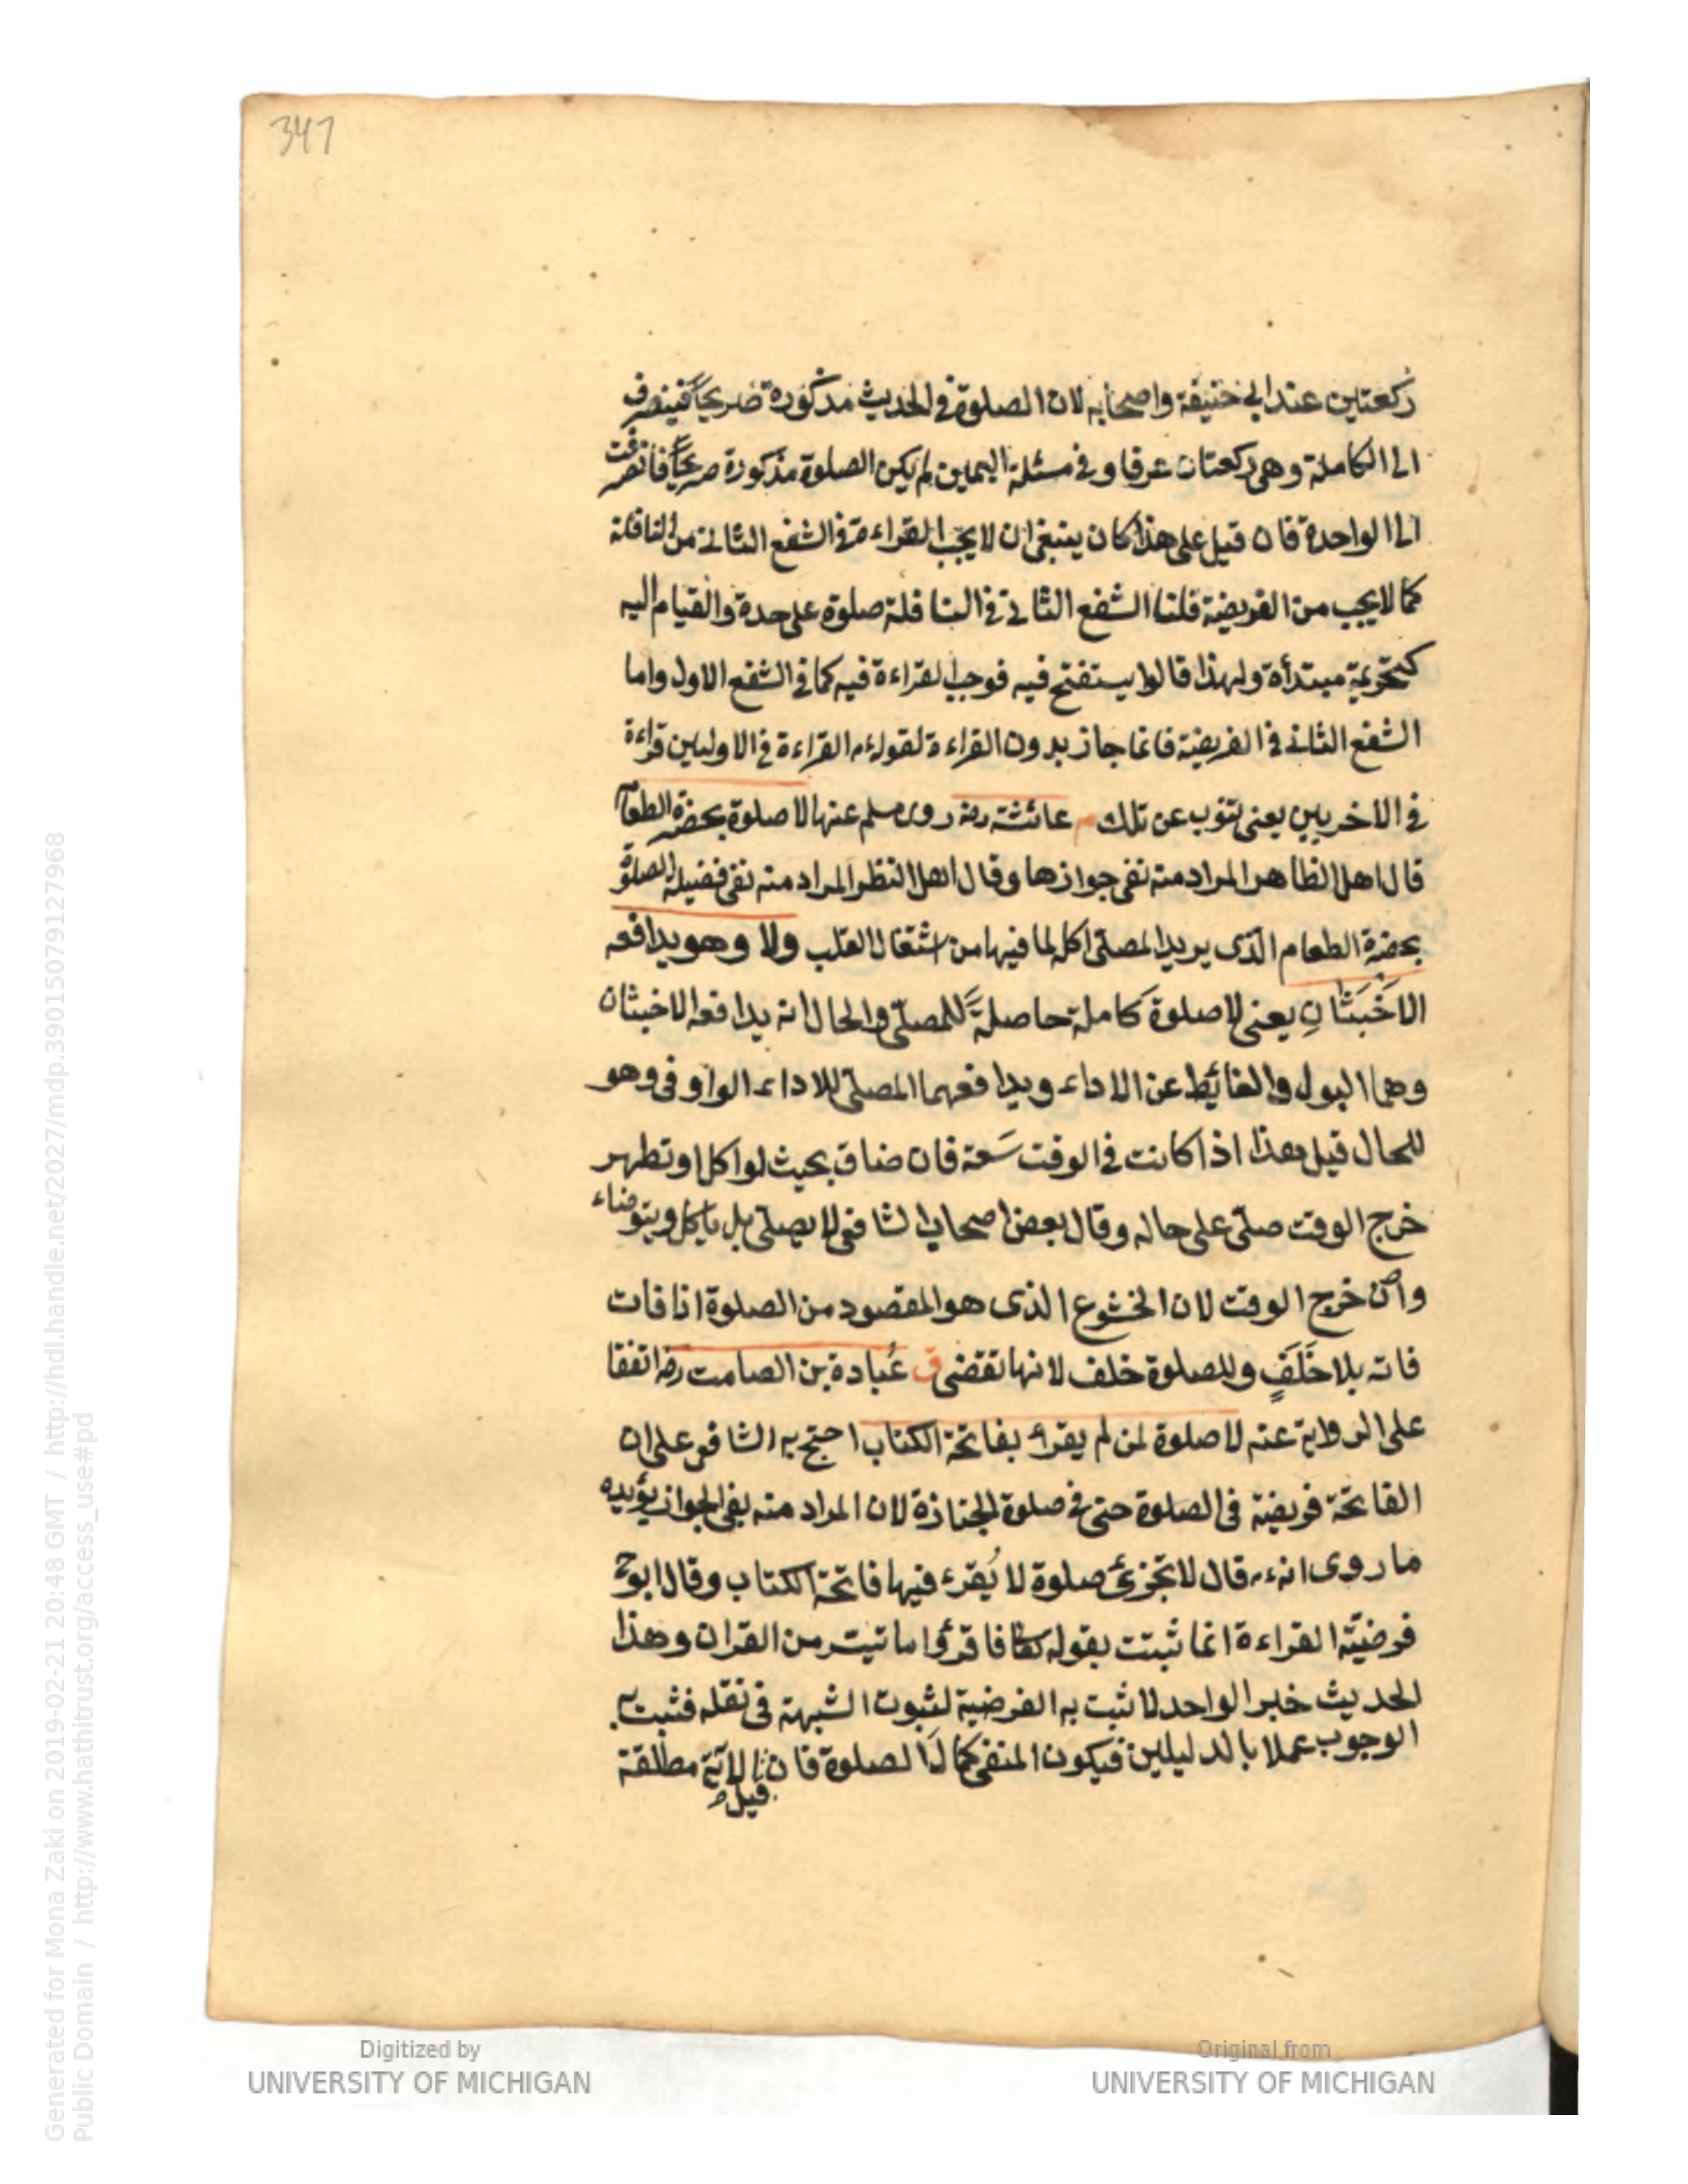 347
ركعتين عند ابي حنيفة واصحابه لان الصلوة في الحديث مذكورة صريحاً فينصرف
الى الكاملة وهي ركعتان عرفا وفي مسئلة اليمين لم يكن الصلوة مذكورة صريحاً فانصرفت
الى الواحدة فان قيل على هذا كان ينبغي ان لا يجب القراءة في الشفع الثاني من النافلة
كما لا يجب من الفريضة قلنا الشفع الثاني في النافلة صلوة على حدة والقيام اليه
كتحريمة مبتدأة ولهذا قالوا يستفتح فيه فوجب القراءة فيه كما في الشفع الاول واما
الشفع الثاني في الفريضة فانما جاز بدون القراءة لقوله ءم القراءة في الاوليين قراءة
في الاخريين يعني تنوب عن تلك م عائشة رضه روى مسلم عنها لا صلوة بحضرة الطعام
قال اهل الظاهر المراد منه نفي جوازها وقال اهل النظر المراد منه نفي فضيلة الصلوة
بحضرة الطعام الذي يريد المصلي اكله لما فيها من اشتغال القلب ولا وهو يدافعه
الاَخْبَثَانِ يعني لا صلوة كاملة حاصلةً للمصلي والحال انه يدافعه الاخبثان
وهما البول والغائط عن الاداء ويدافعهما المصلي للاداء الواو في وهو
للحال قيل هذا اذا كانت في الوقت سَعة فان ضاق بحيث لو اكل او تطهر
خرج الوقت صلى على حاله وقال بعض اصحاب الشافعي لا يصلي بل ياكل ويتوضاء
وان خرج الوقت لان الخشوع الذي هو المقصود من الصلوة اذا فات
فاته بلا خَلَفٍ وللصلوة خلف لانها تقضى ق عُبادة بن الصامت رضه اتفقا
على الرواية عنه لا صلوة لمن لم يقرأ بفاتحة الكتاب احتج به الشافعي على ان
الفاتحة فريضة في الصلوة حتى في صلوة الجنازة لان المراد منه نفي الجواز يؤيده
ما روى انه ءم قال لا تجزئ صلوة لا يُقرء فيها فاتحة الكتاب وقال ابو ح
فرضيّة القراءة انما ثبتت بقوله تعا فاقرؤا ما تيسر من القران وهذا
الحديث خبر الواحد لا تثبت به الفرضية لثبوت الشبهة في نقله فثبت به
الوجوب عملا بالدليلين فيكون المنفي كمالَ الصلوة فان الآية مطلقة
قيل
Generated for Mona Zaki on 2019-02-21 20:48 GMT / http://hdl.handle.net/2027/mdp.39015079127968
Public Domain / http://www.hathitrust.org/access_use#pd
Digitized by
UNIVERSITY OF MICHIGAN
Original from
UNIVERSITY OF MICHIGAN